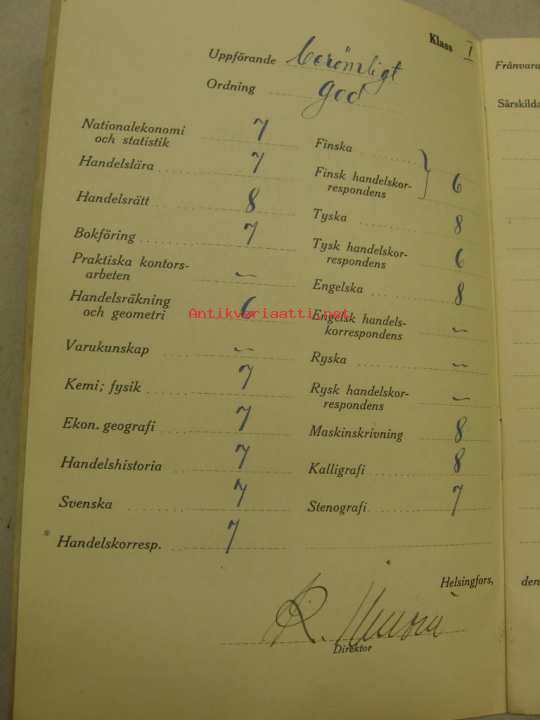 Klass I
Uppförande berömligt
Ordning god
Nationalekonomi
och statistik 7
Handelslära 7
Handelsrätt 8
Bokföring 7
Praktiska kontors-
arbeten –
Handelsräkning
och geometri 6
Varukunskap –
Kemi; fysik 7
Ekon. geografi 7
Handelshistoria 7
Svenska 7
Handelskorresp. 7
Finska
Finsk handelskor-
respondens 6
Tyska 8
Tysk handelskor-
respondens 6
Engelska 8
Engelsk handels-
korrespondens –
Ryska –
Rysk handelskor-
respondens –
Maskinskrivning 8
Kalligrafi 8
Stenografi 7
Helsingfors,
R.
Direktor
Antikvariaatti.net
Frånvara
Särskilda
den